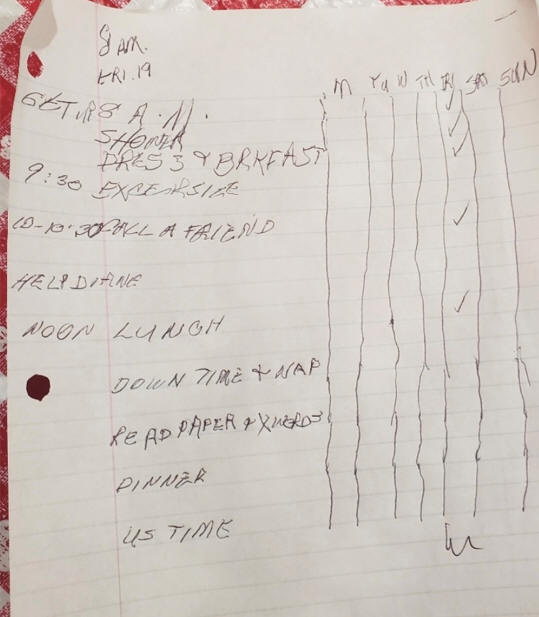 8 AM.
FRI. 19
M TU W TH FRI SAT SUN
GET UP 8 A.M.
SHOWER
DRESS & BRKFAST
9:30 EXCERSIZE
10-10:30 CALL A FRIEND
HELP DIANE
NOON LUNCH
DOWN TIME & NAP
READ PAPER & XWERDS
DINNER
US TIME